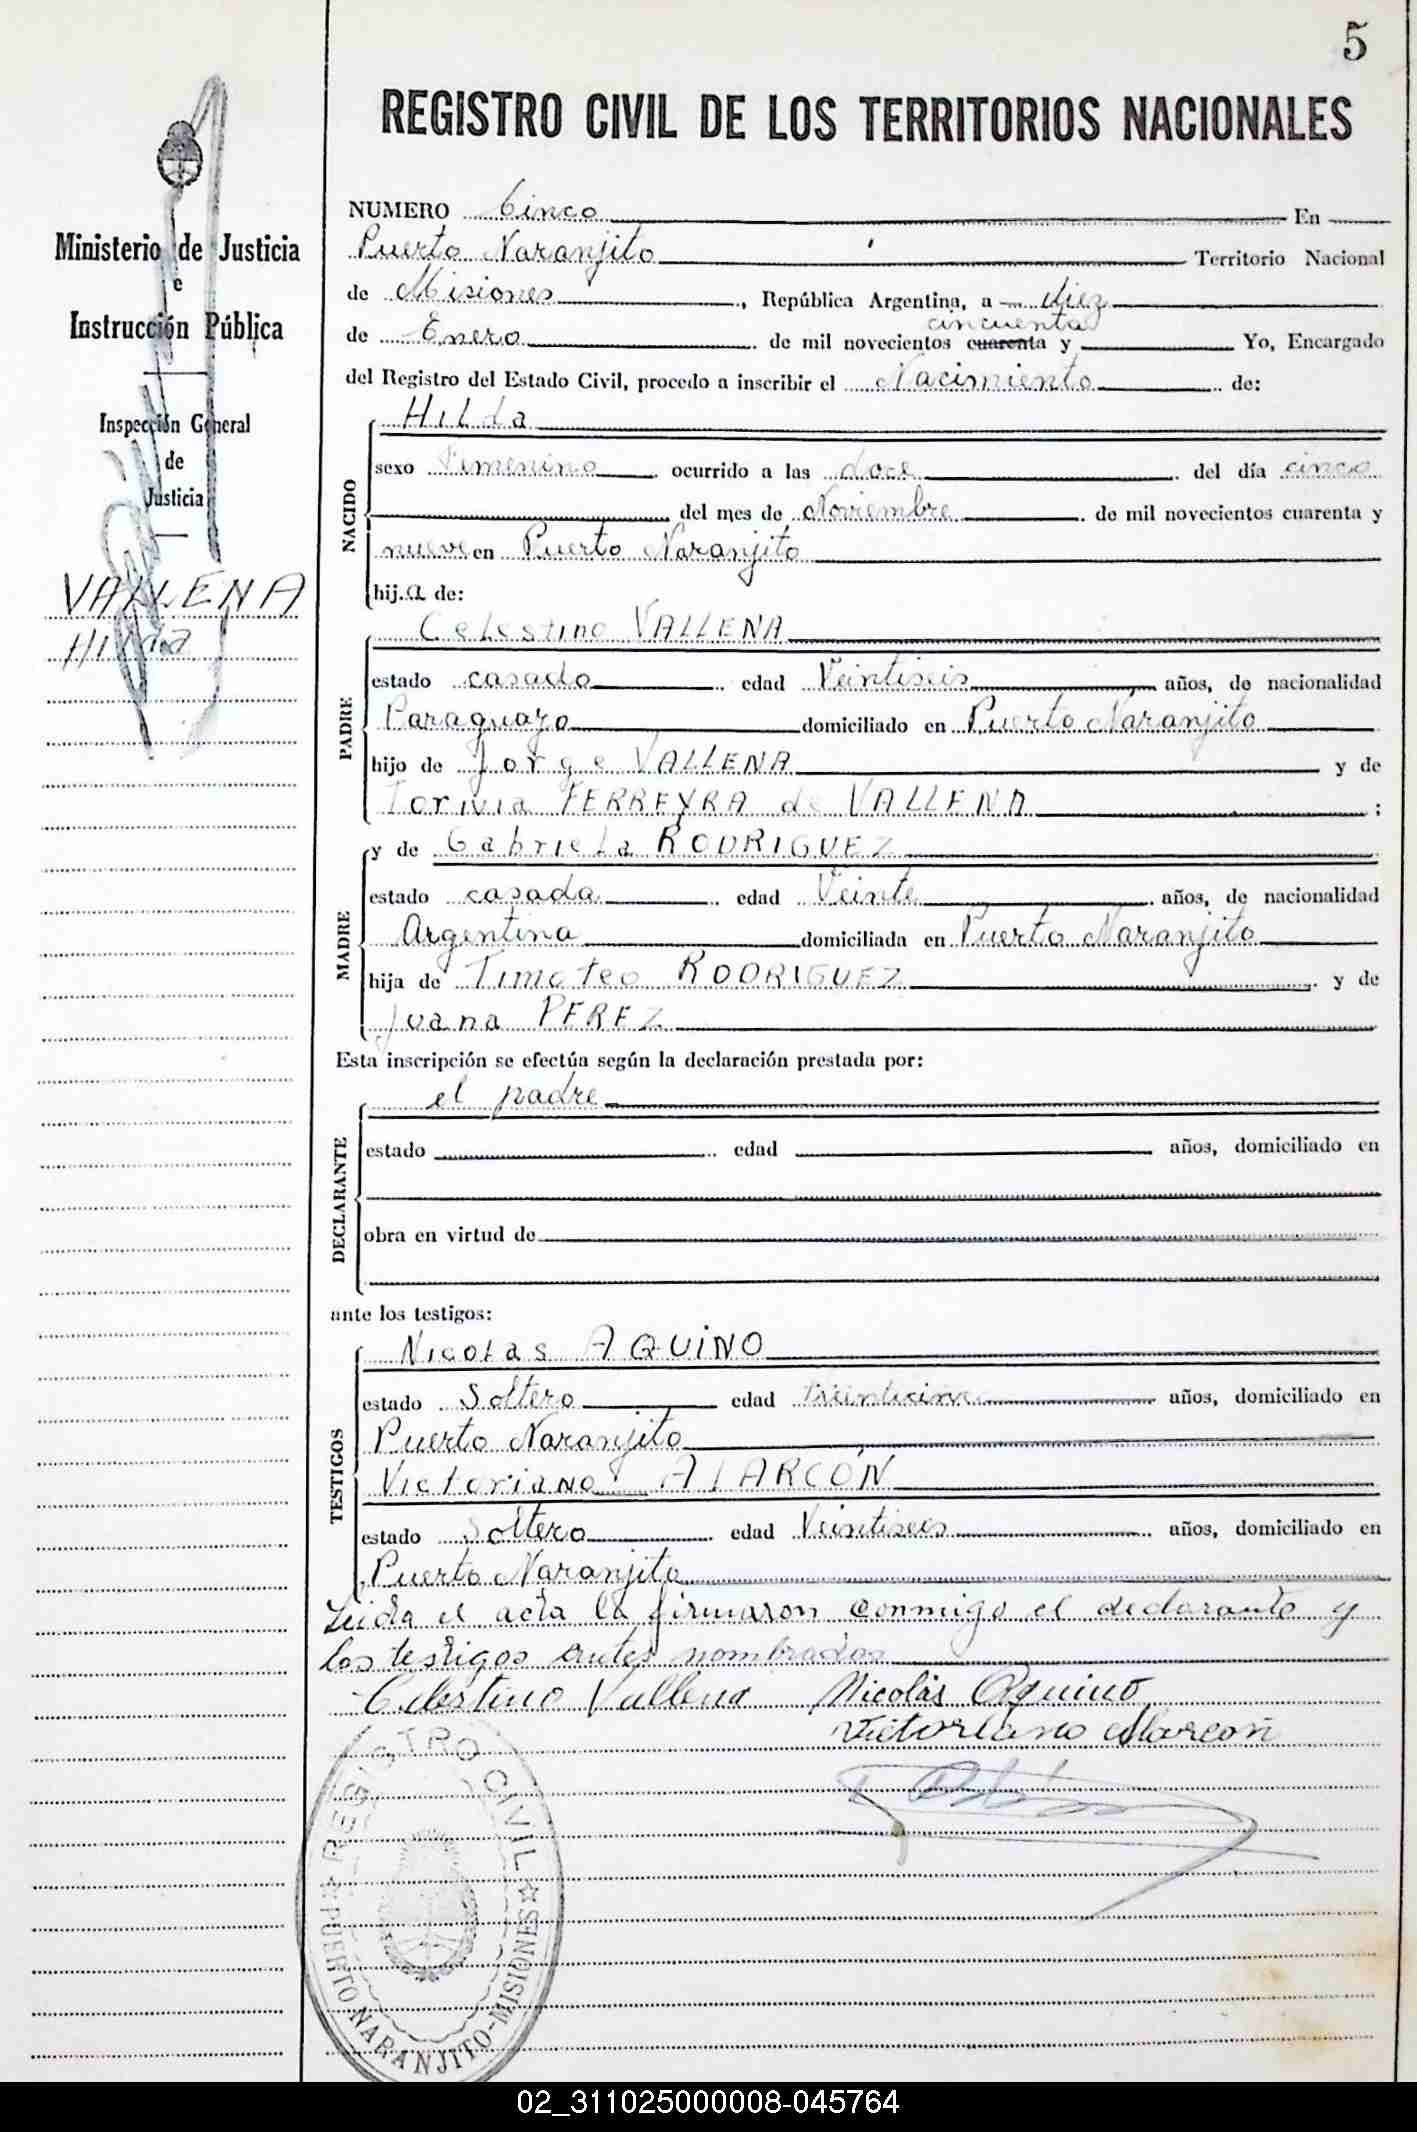 5
REGISTRO CIVIL DE LOS TERRITORIOS NACIONALES
Ministerio de Justicia
e
Instrucción Pública
Inspección General
de
Justicia
VALLENA
Hilda
NUMERO Cinco En
Puerto Naranjito Territorio Nacional
de Misiones, República Argentina, a diez
cincuenta
de Enero de mil novecientos cuarenta y Yo, Encargado
del Registro del Estado Civil, procedo a inscribir el Nacimiento de:
NACIDO
HiLda
sexo Femenino ocurrido a las doce del día cinco
del mes de Noviembre de mil novecientos cuarenta y
nueve en Puerto Naranjito
hij.a de:
PADRE
Celestino VALLENA
estado casado edad Veintiseis años, de nacionalidad
Paraguayo domiciliado en Puerto Naranjito
hijo de Jorge VALLENA y de
Torivia FERREYRA de VALLENA ;
MADRE
y de Gabriela RODRIGUEZ
estado casada edad Veinte años, de nacionalidad
Argentina domiciliada en Puerto Naranjito
hija de Timoteo RODRIGUEZ y de
Juana PEREZ
Esta inscripción se efectúa según la declaración prestada por:
DECLARANTE
el padre
estado edad años, domiciliado en
obra en virtud de
ante los testigos:
TESTIGOS
Nicolas AQUINO
estado Soltero edad años, domiciliado en
Puerto Naranjito
Victoriano ALARCÓN
estado Soltero edad Veintiseis años, domiciliado en
Puerto Naranjito
Leida el acta la firmaron conmigo el declarante y
los testigos antes nombrados
Celestino Vallena Nicolás Aquino
Victoriano Alarcon
REGISTRO CIVIL
PUERTO NARANJITO-MISIONES
02_311025000008-045764